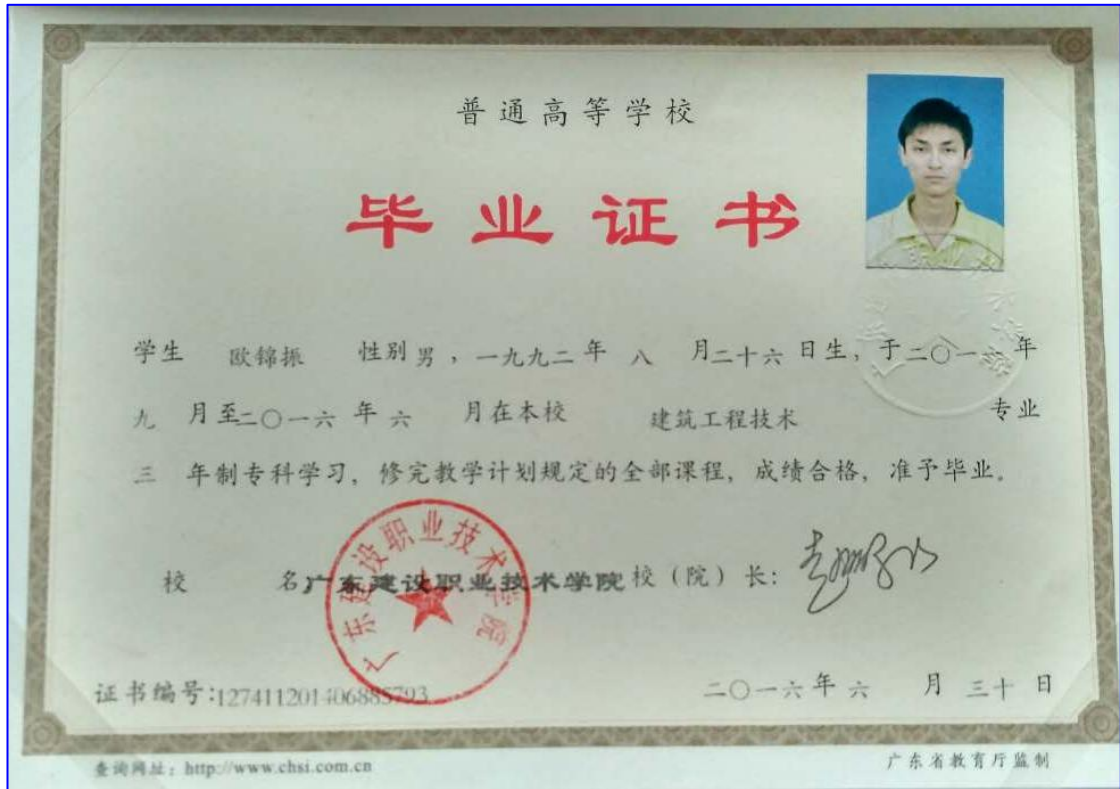 普通高等学校
毕业证书
学生 欧锦振 性别 男，一九九二 年 八 月二十六 日生，于二〇一一 年
九 月至二〇一六 年 六 月在本校 建筑工程技术 专业
三 年制专科学习，修完教学计划规定的全部课程，成绩合格，准予毕业。
校 名 广东建设职业技术学院 校（院）长：
广东建设职业技术学院
证书编号：127411201406885793
二〇一六 年 六 月 三十 日
查询网址：http://www.chsi.com.cn
广东省教育厅监制